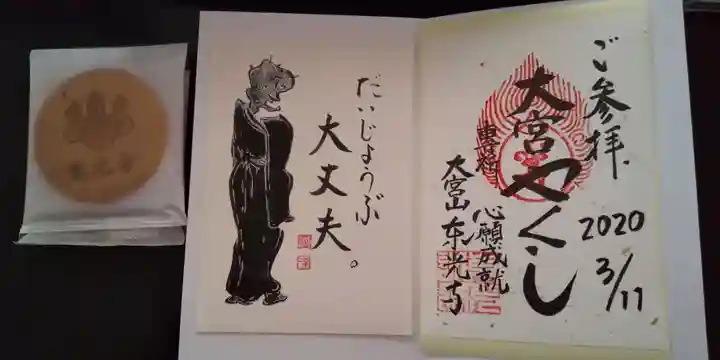 だいじょうぶ
大丈夫。
ご参拝
2020
3/11
大宮やくし
心願成就
大宮山東光寺